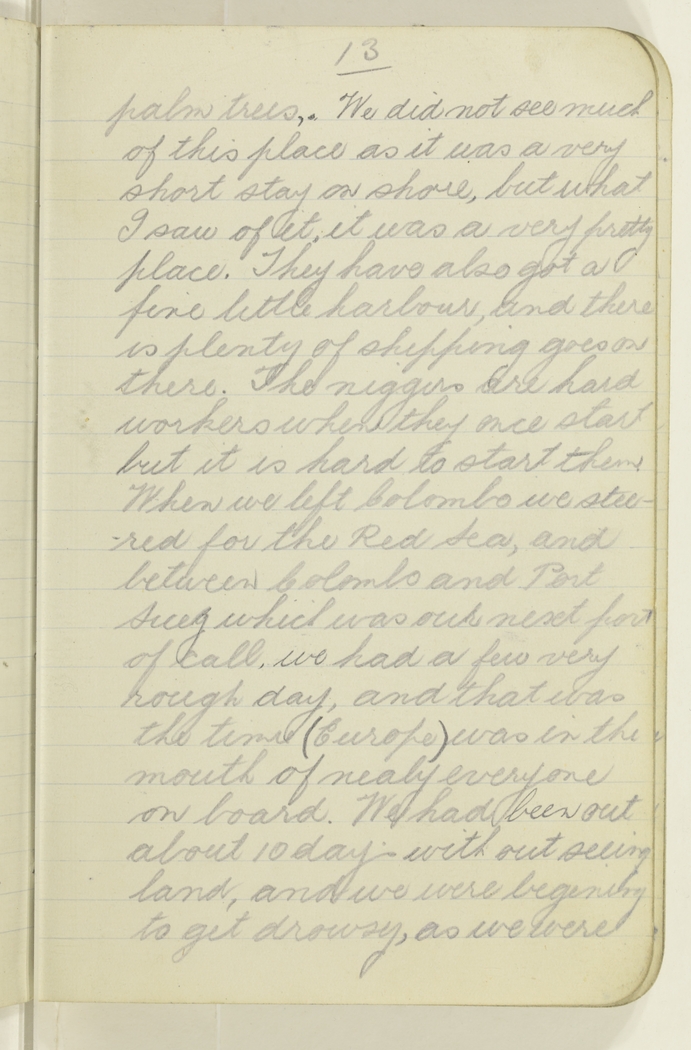 13
palm trees,. We did not see much
of this place as it was a very
short stay on shore, but what
I saw of it, it was a very pretty
place. They have also got a
fine little harbour, and there
is plenty of shipping goes on
there. The niggers are hard
workers when they once start
but it is hard to start them
When we left Colombo we stee-
-red for the Red Sea, and
between Colombo and Port
Suez which was our next port
of call, we had a few very
rough day, and that was
the time (Europe) was in the
mouth of nealy everyone
on board. We had been out
about 10 day - with out seeing
land, and we were begening
to get drowsy, as we were